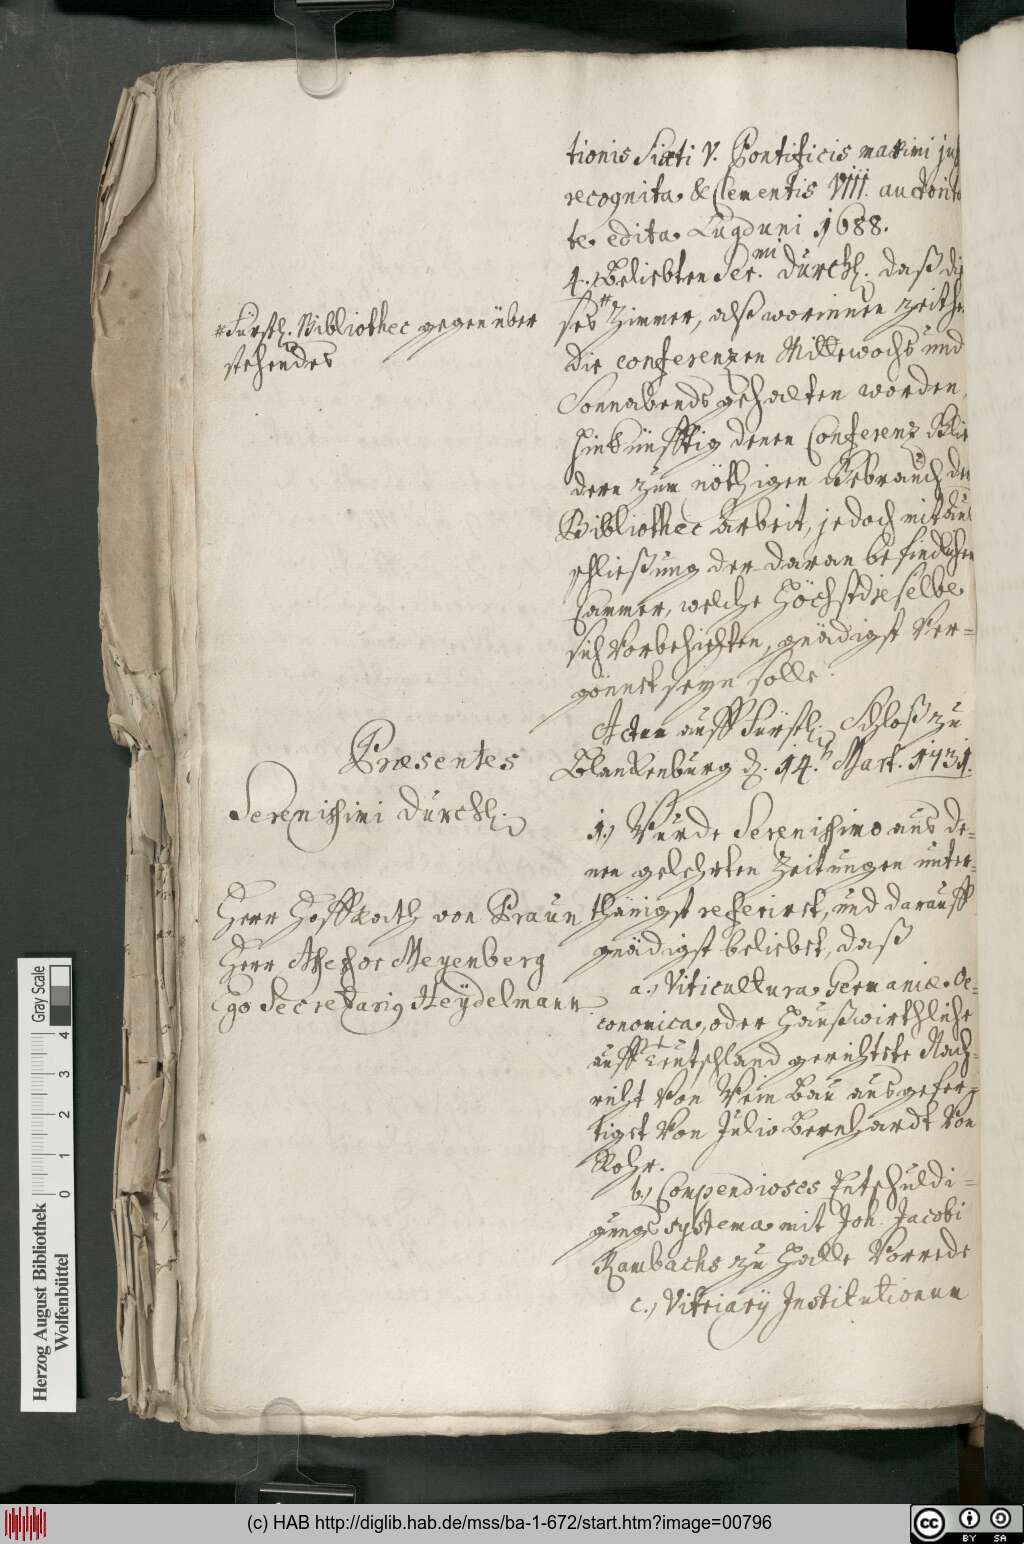 tionis Sixti V. Pontificis maximi jus
recognita & Clementis VIII. auctorita
te edita Lugduni 1688.
4., Beliebten Ser.mi Dürchl. daß die
ses # Zimmer, alß worinnen zeither
die conferenzen Mittewochs und
Sonnabends gehalten worden,
hinkünfftig denen Conferenz Glie
dern zum nöthigen Gebrauch der
Bibliothec Arbeit, jedoch mit auß
schließung der daran befindlichen
Cammer, welche Höchstdieselbe
sich Vorbehielten, gnädigst Ver=
gönnet seyn solle.
# Fürstl. Bibliothec gegenüber
stehendes
Actum auff Fürstl. Schloß zu
Blankenburg d. 14.t Mart. 1731.
Præsentes
Serenissimi Dürchl.
Herr Hoffrath von Praun
Herr Assessor Meyenberg
Ego Secretarig Heÿdelmann.
1., Würde Serenissimo aus de=
nen gelehrten Zeitungen unter=
thänigst referiret, und darauff
gnädigst beliebet, daß
a., Viticultura Germaniæ Oe=
conomica, oder Haußwirthliche
auff Teutschland gerichtete Nach=
richt Von Wein Bau ausgefer=
tiget Von Julio Bernhardt Von
Rohr.
b., Compendioses Entschuldi=
gungs systema mit Joh. Jacobi
Rambachs zu Halle Vorrede
c., Vitriarÿ Institutionum
Herzog August Bibliothek
Wolfenbüttel
0 1 2 3 4
Gray Scale
(c) HAB http://diglib.hab.de/mss/ba-1-672/start.htm?image=00796
cc BY SA